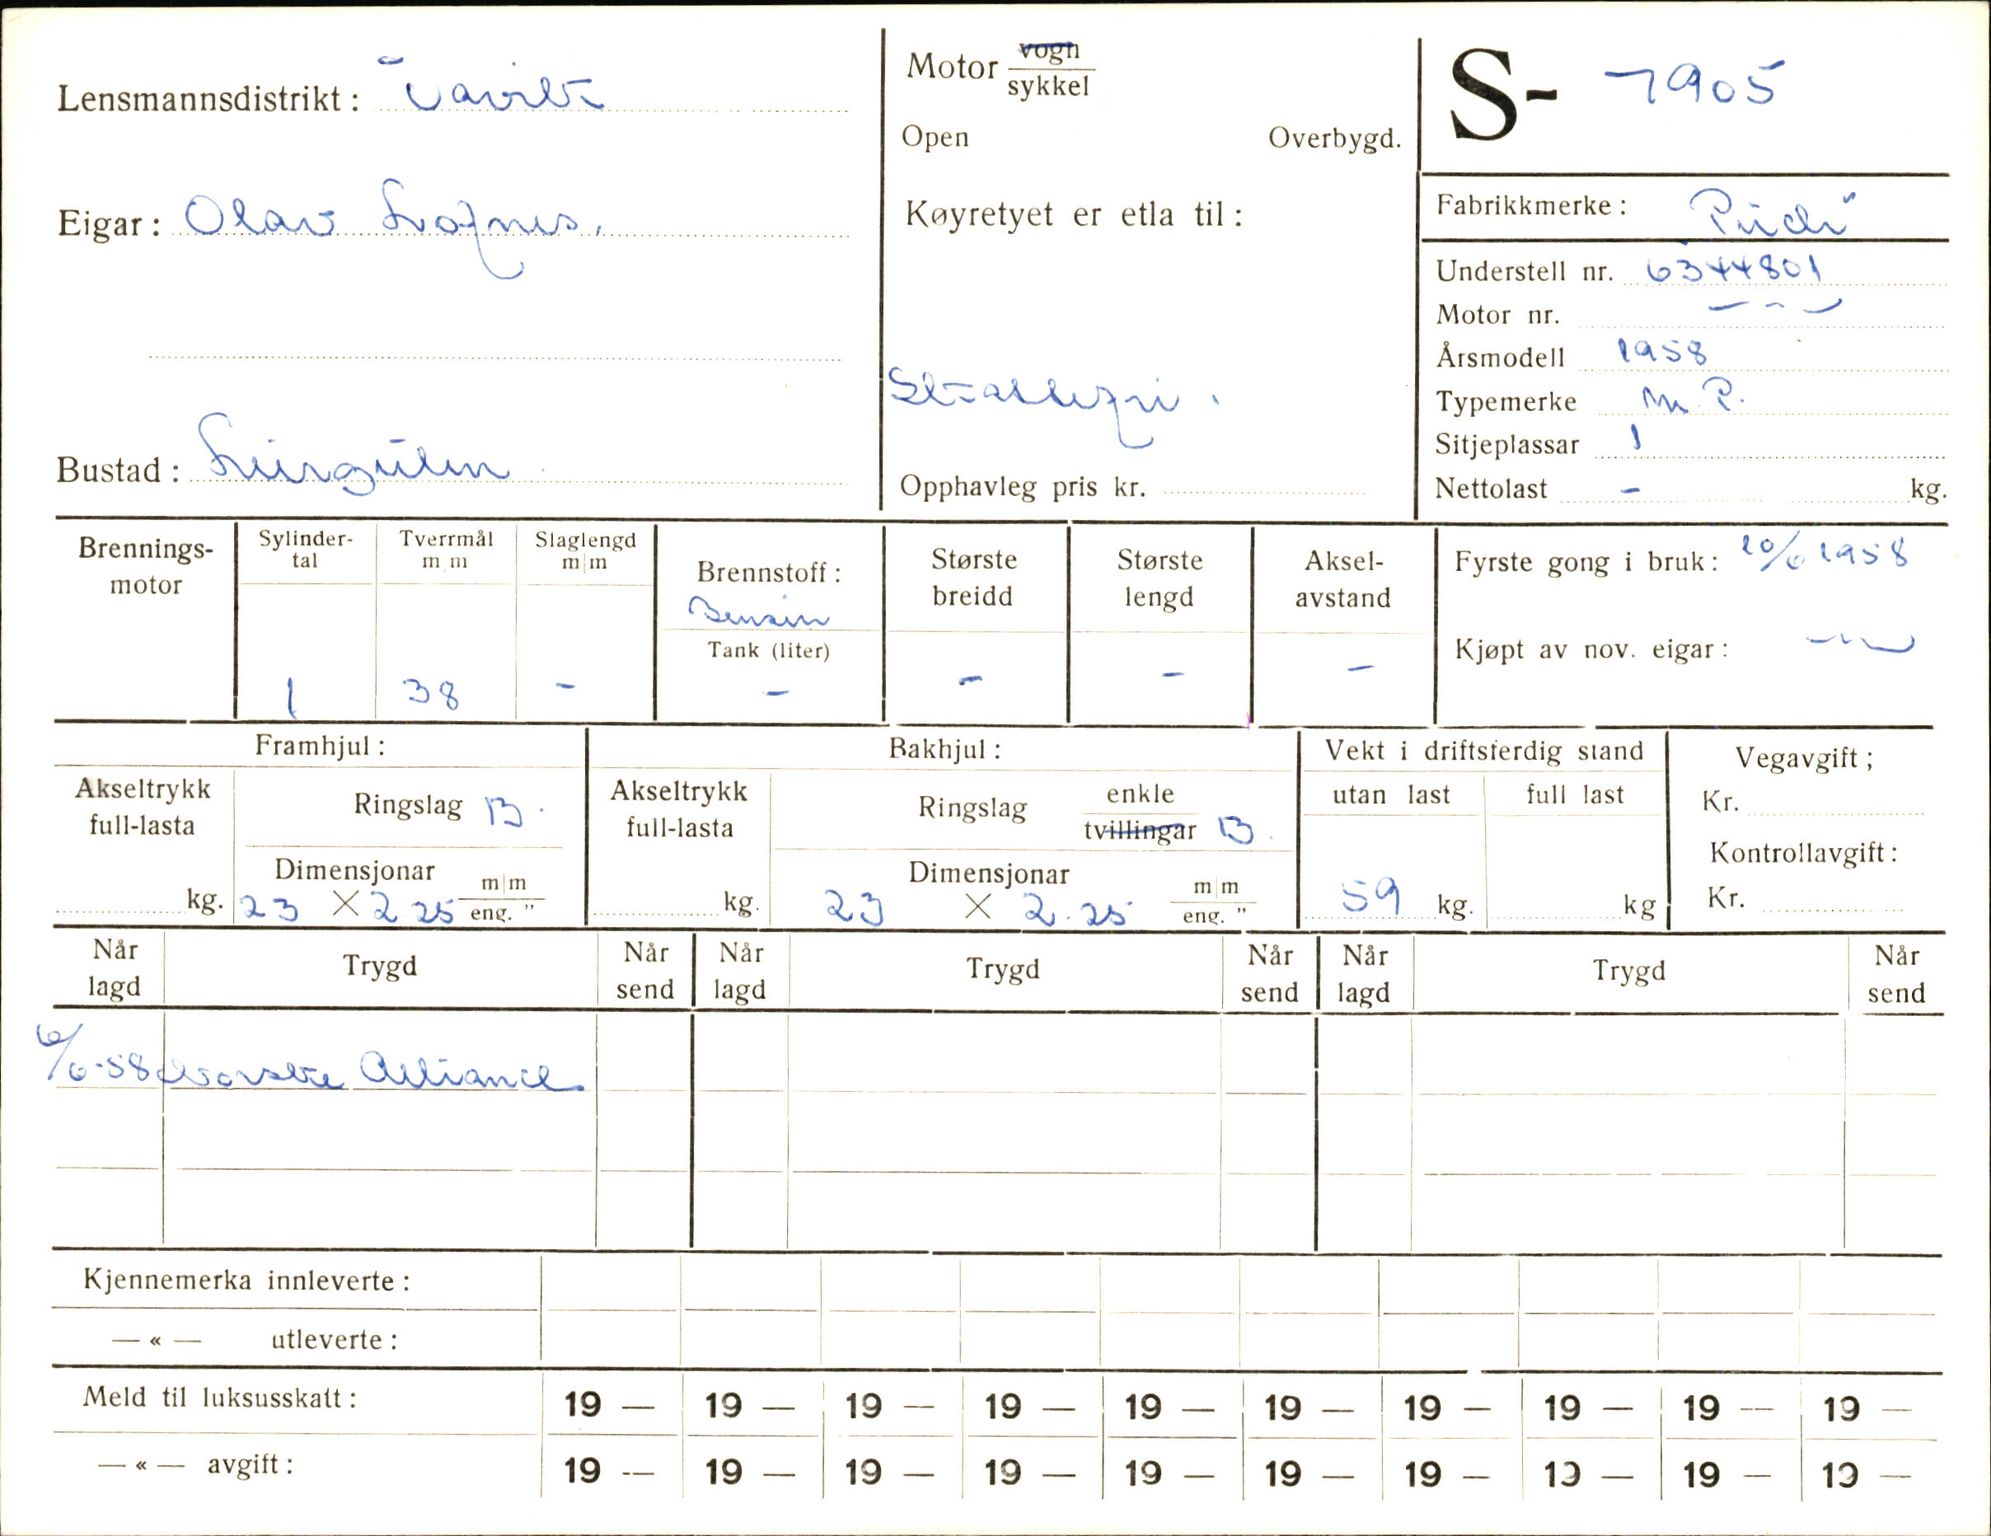 Lensmannsdistrikt:
Motor vogn
sykkel
S- 7905
Open Overbygd.
Eigar: Olav
Køyretyet er etla til:
Fabrikkmerke: Puch
Understell nr. 6344801
Motor nr. — " —
Årsmodell 1958
Typemerke M. P.
Sitjeplassar 1
Nettolast - kg.
Bustad:
Opphavleg pris kr.
Brennings-
motor
Sylinder-
tal
Tverrmål
m/m
Slaglengd
m/m
Brennstoff:
Bensin
Tank (liter)
Største
breidd
Største
lengd
Aksel-
avstand
Fyrste gong i bruk: 20/6 1958
Kjøpt av nov. eigar: — " —
1 38 - - - - -
Framhjul: Bakhjul: Vekt i driftsferdig stand Vegavgift;
Akseltrykk
full-lasta
Ringslag B.
Akseltrykk
full-lasta
Ringslag enkle
tvillingar B.
utan last full last
Kr.
Kontrollavgift:
Kr.
Dimensjonar
kg. 23 × 2 25 m/m
eng. "
Dimensjonar
kg. 23 × 2.25 m/m
eng. "
59 kg. kg
Når
lagd
Trygd
Når
send
Når
lagd
Trygd
Når
send
Når
lagd
Trygd
Når
send
6/6-58 Norske Alliance
Kjennemerka innleverte:
— « — utleverte:
Meld til luksusskatt: 19 — 19 — 19 — 19 — 19 — 19 — 19 — 19 — 19 — 19 —
— « — avgift: 19 — 19 — 19 — 19 — 19 — 19 — 19 — 19 — 19 — 19 —